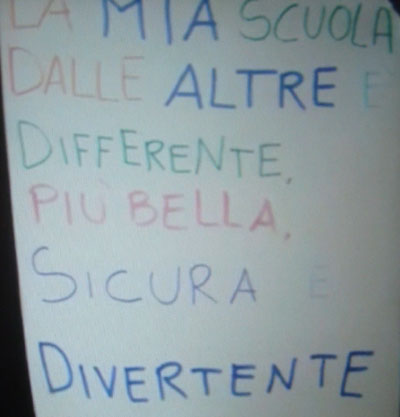 LA MIA SCUOLA
DALLE ALTRE È
DIFFERENTE,
PIÙ BELLA,
SICURA E
DIVERTENTE